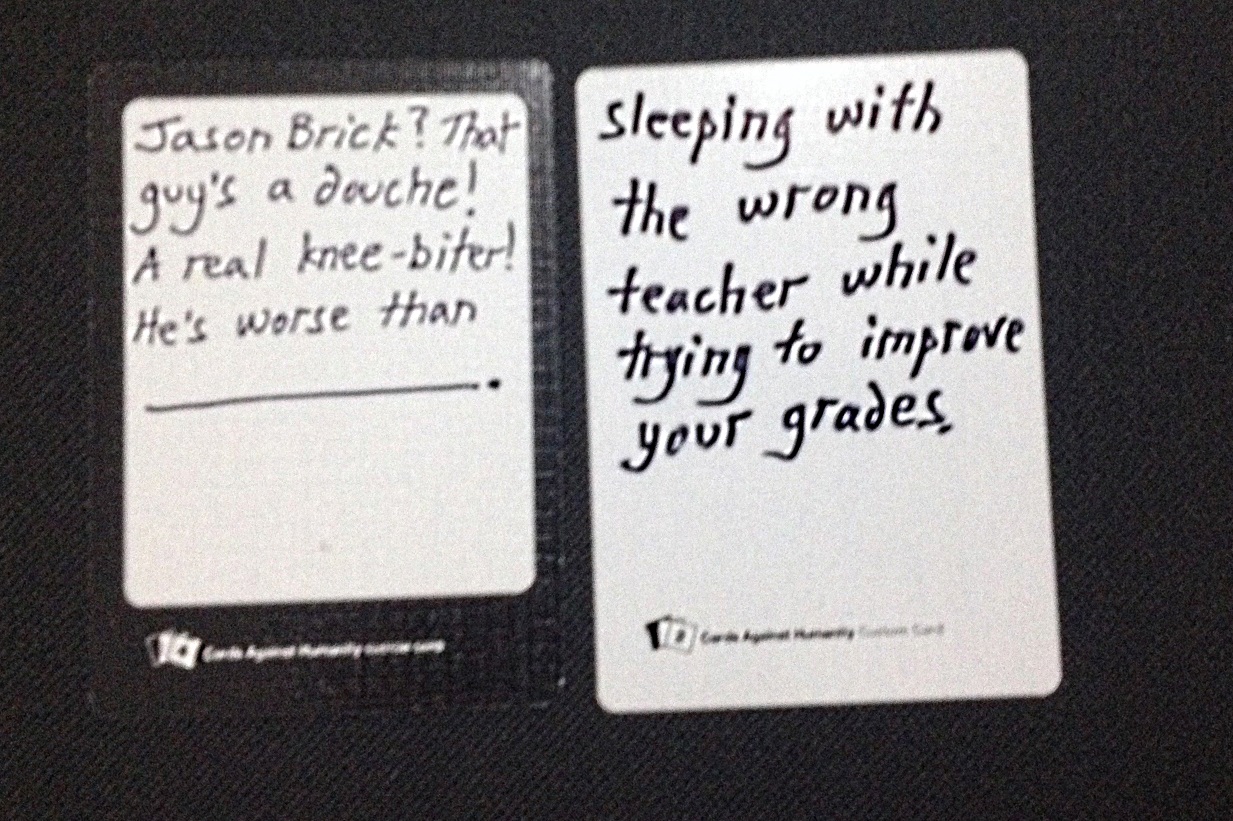 Jason Brick? That
guy's a douche!
A real knee-biter!
He's worse than
____________.
4 Cards Against Humanity Custom Card
sleeping with
the wrong
teacher while
trying to improve
your grades.
2 Cards Against Humanity Custom Card